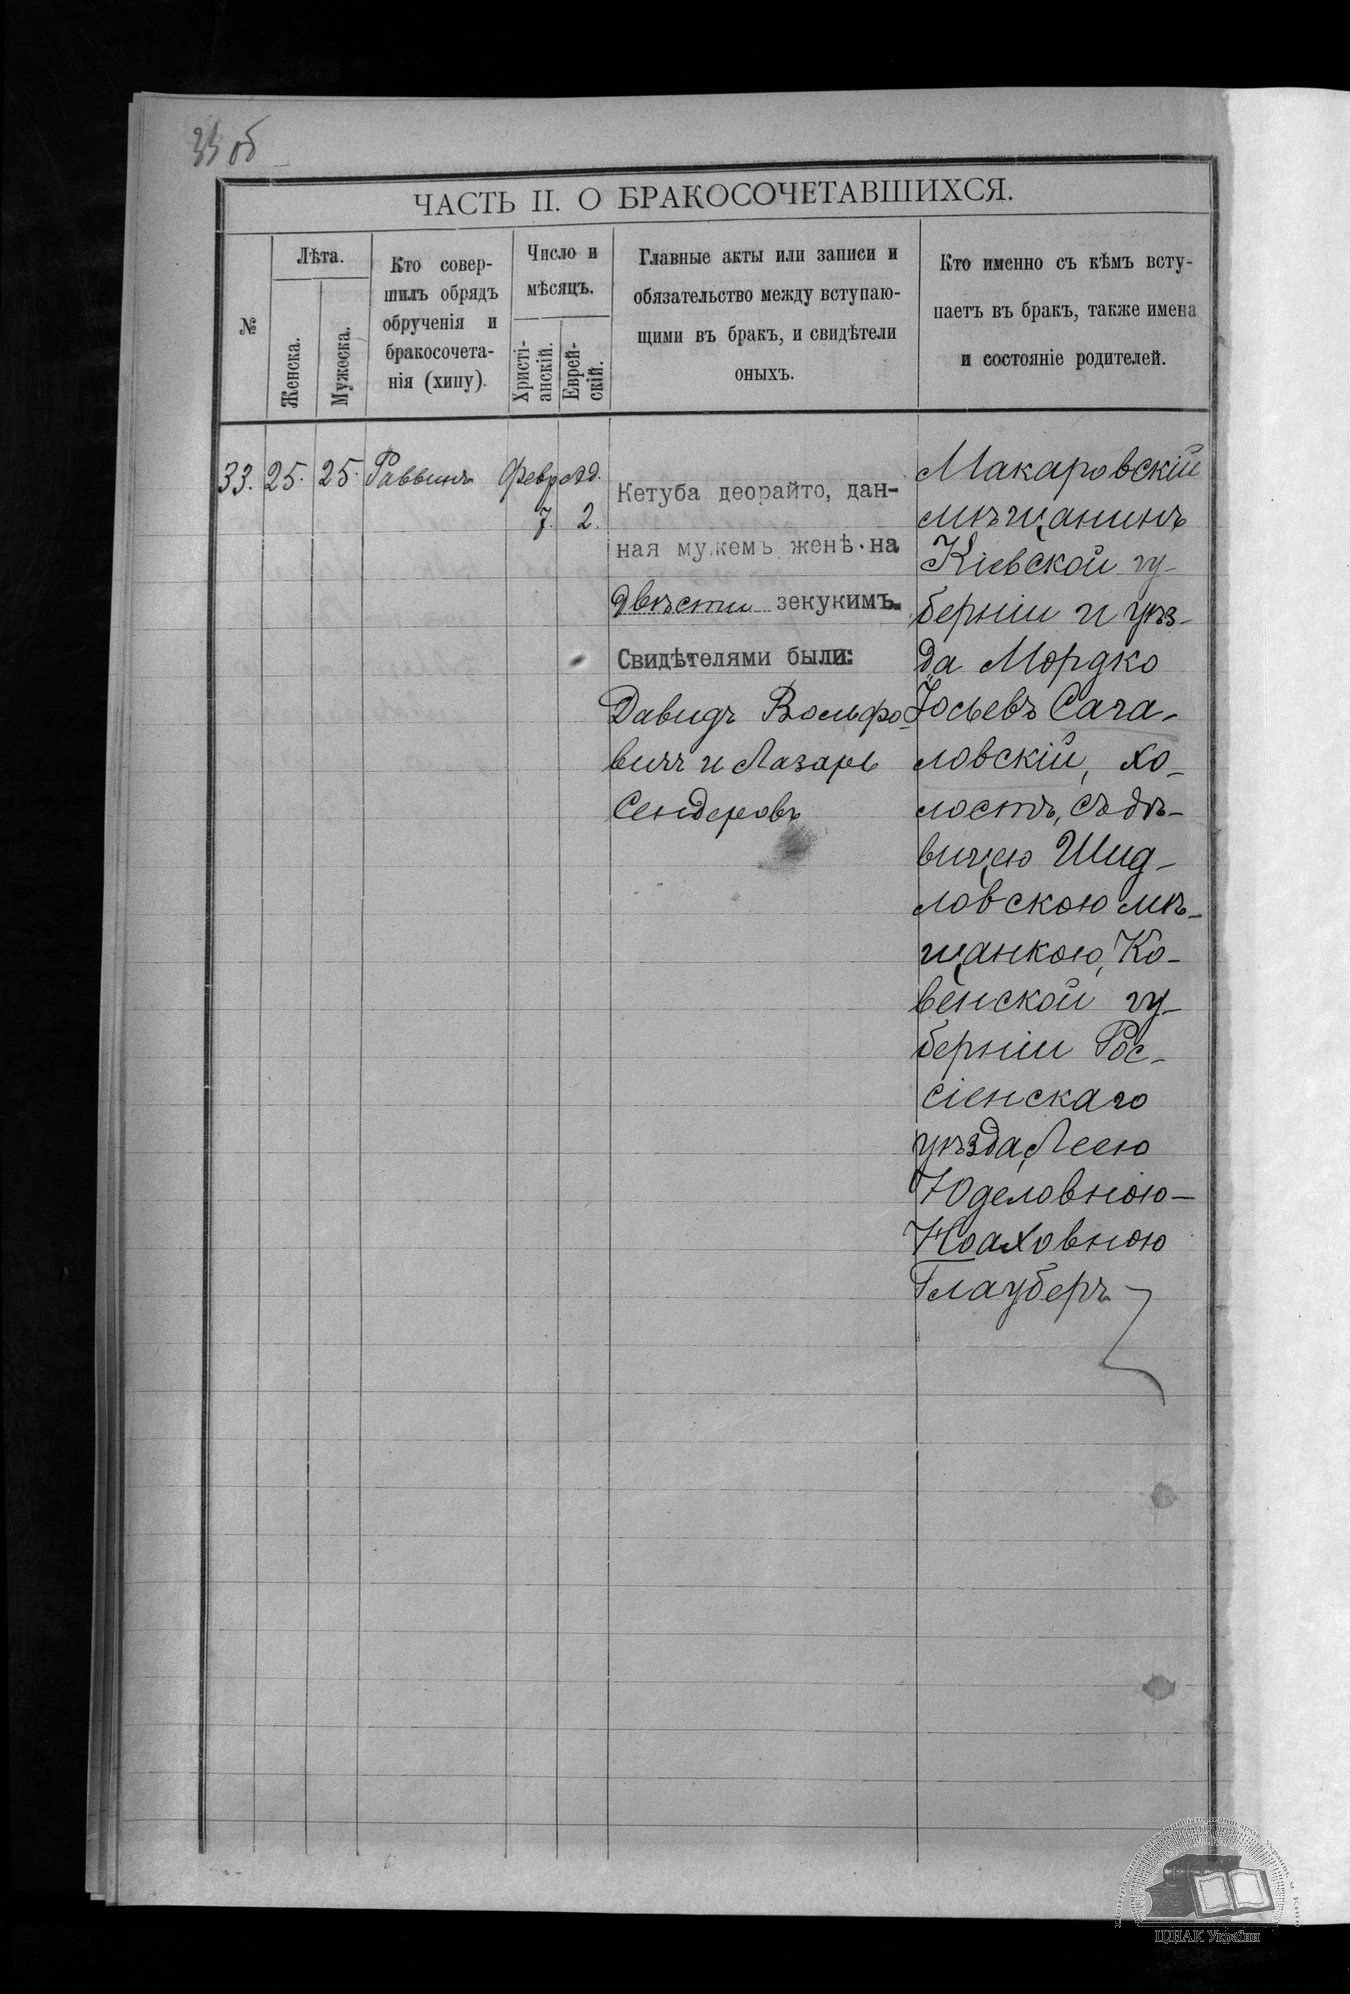 33 об
ЧАСТЬ II. О БРАКОСОЧЕТАВШИХСЯ.
№
Лѣта.
Женска.
Мужеска.
Кто совер-
шилъ обрядъ
обрученія и
бракосочета-
нія (хипу).
Число и
мѣсяцъ.
Христі-
анскій.
Еврей-
скій.
Главные акты или записи и
обязательство между вступаю-
щими въ бракъ, и свидѣтели
оныхъ.
Кто именно съ кѣмъ всту-
паетъ въ бракъ, также имена
и состояніе родителей.
33. 25. 25. Раввинъ Февр. Ад.
7. 2.
Кетуба деорайто, дан-
ная мужемъ женѣ на
двѣсти зекукимъ.
Свидѣтелями были:
Давидъ Вольфо-
вичъ и Лазарь
Сендеровъ
Макаровскій
мѣщанинъ
Кіевской гу-
берніи и уѣз-
да Мордко
Іосьевъ Сага-
ловскій, хо-
лостъ, съ дѣ-
вицею Шид-
ловскою мѣ-
щанкою, Ко-
венской гу-
берніи Рос-
сіенскаго
уѣзда, Леею
Юделовною-
Ноаховною
Глауберъ
ЦДІАК України